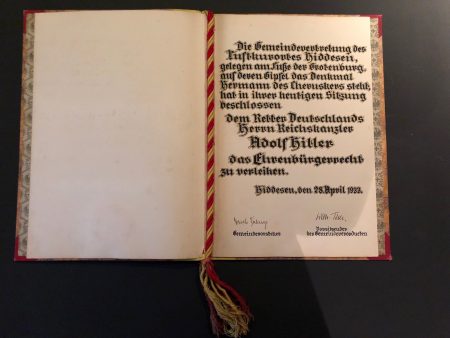 Die Gemeindevertretung des
Luftkurortes Hiddesen,
gelegen am Fuße der Grotenburg,
auf deren Gipfel das Denkmal
Hermann des Cheruskers steht,
hat in ihrer heutigen Sitzung
beschlossen
dem Retter Deutschlands
Herrn Reichskanzler
Adolf Hitler
das Ehrenbürgerrecht
zu verleihen.
Hiddesen, den 28. April 1933.
Gemeindevorsteher
Vorsitzender
des Gemeindevorstandes